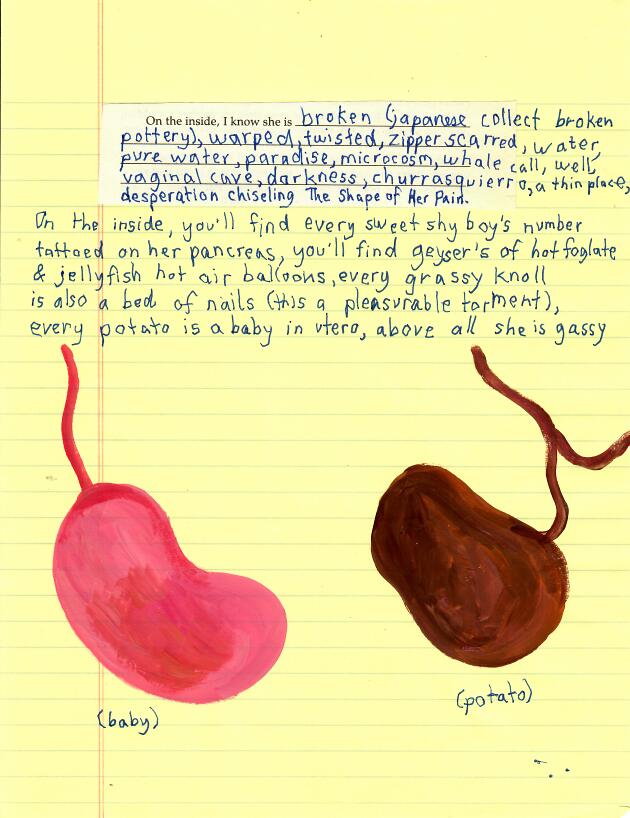 On the inside, I know she is broken (japanese collect broken
pottery), warped, twisted, zipper scarred, water,
pure water, paradise, microcosm, whale call, well,
vaginal cave, darkness, churrasquierro, a thin place,
desperation chiseling The Shape of Her Pain.
On the inside, you'll find every sweet shy boy's number
tattoed on her pancreas, you'll find geyser's of hot foglate
& jellyfish hot air balloons, every grassy knoll
is also a bed of nails (this a pleasurable torment),
every potato is a baby in utero, above all she is gassy
(baby)
(potato)